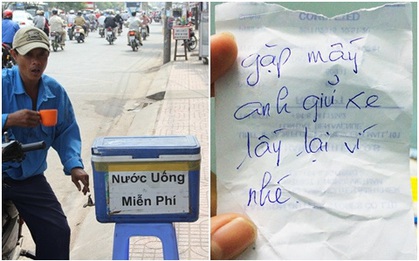 Nước Uống
Miễn Phí
gặp mấy
anh giữ xe
lấy lại ví
nhé.